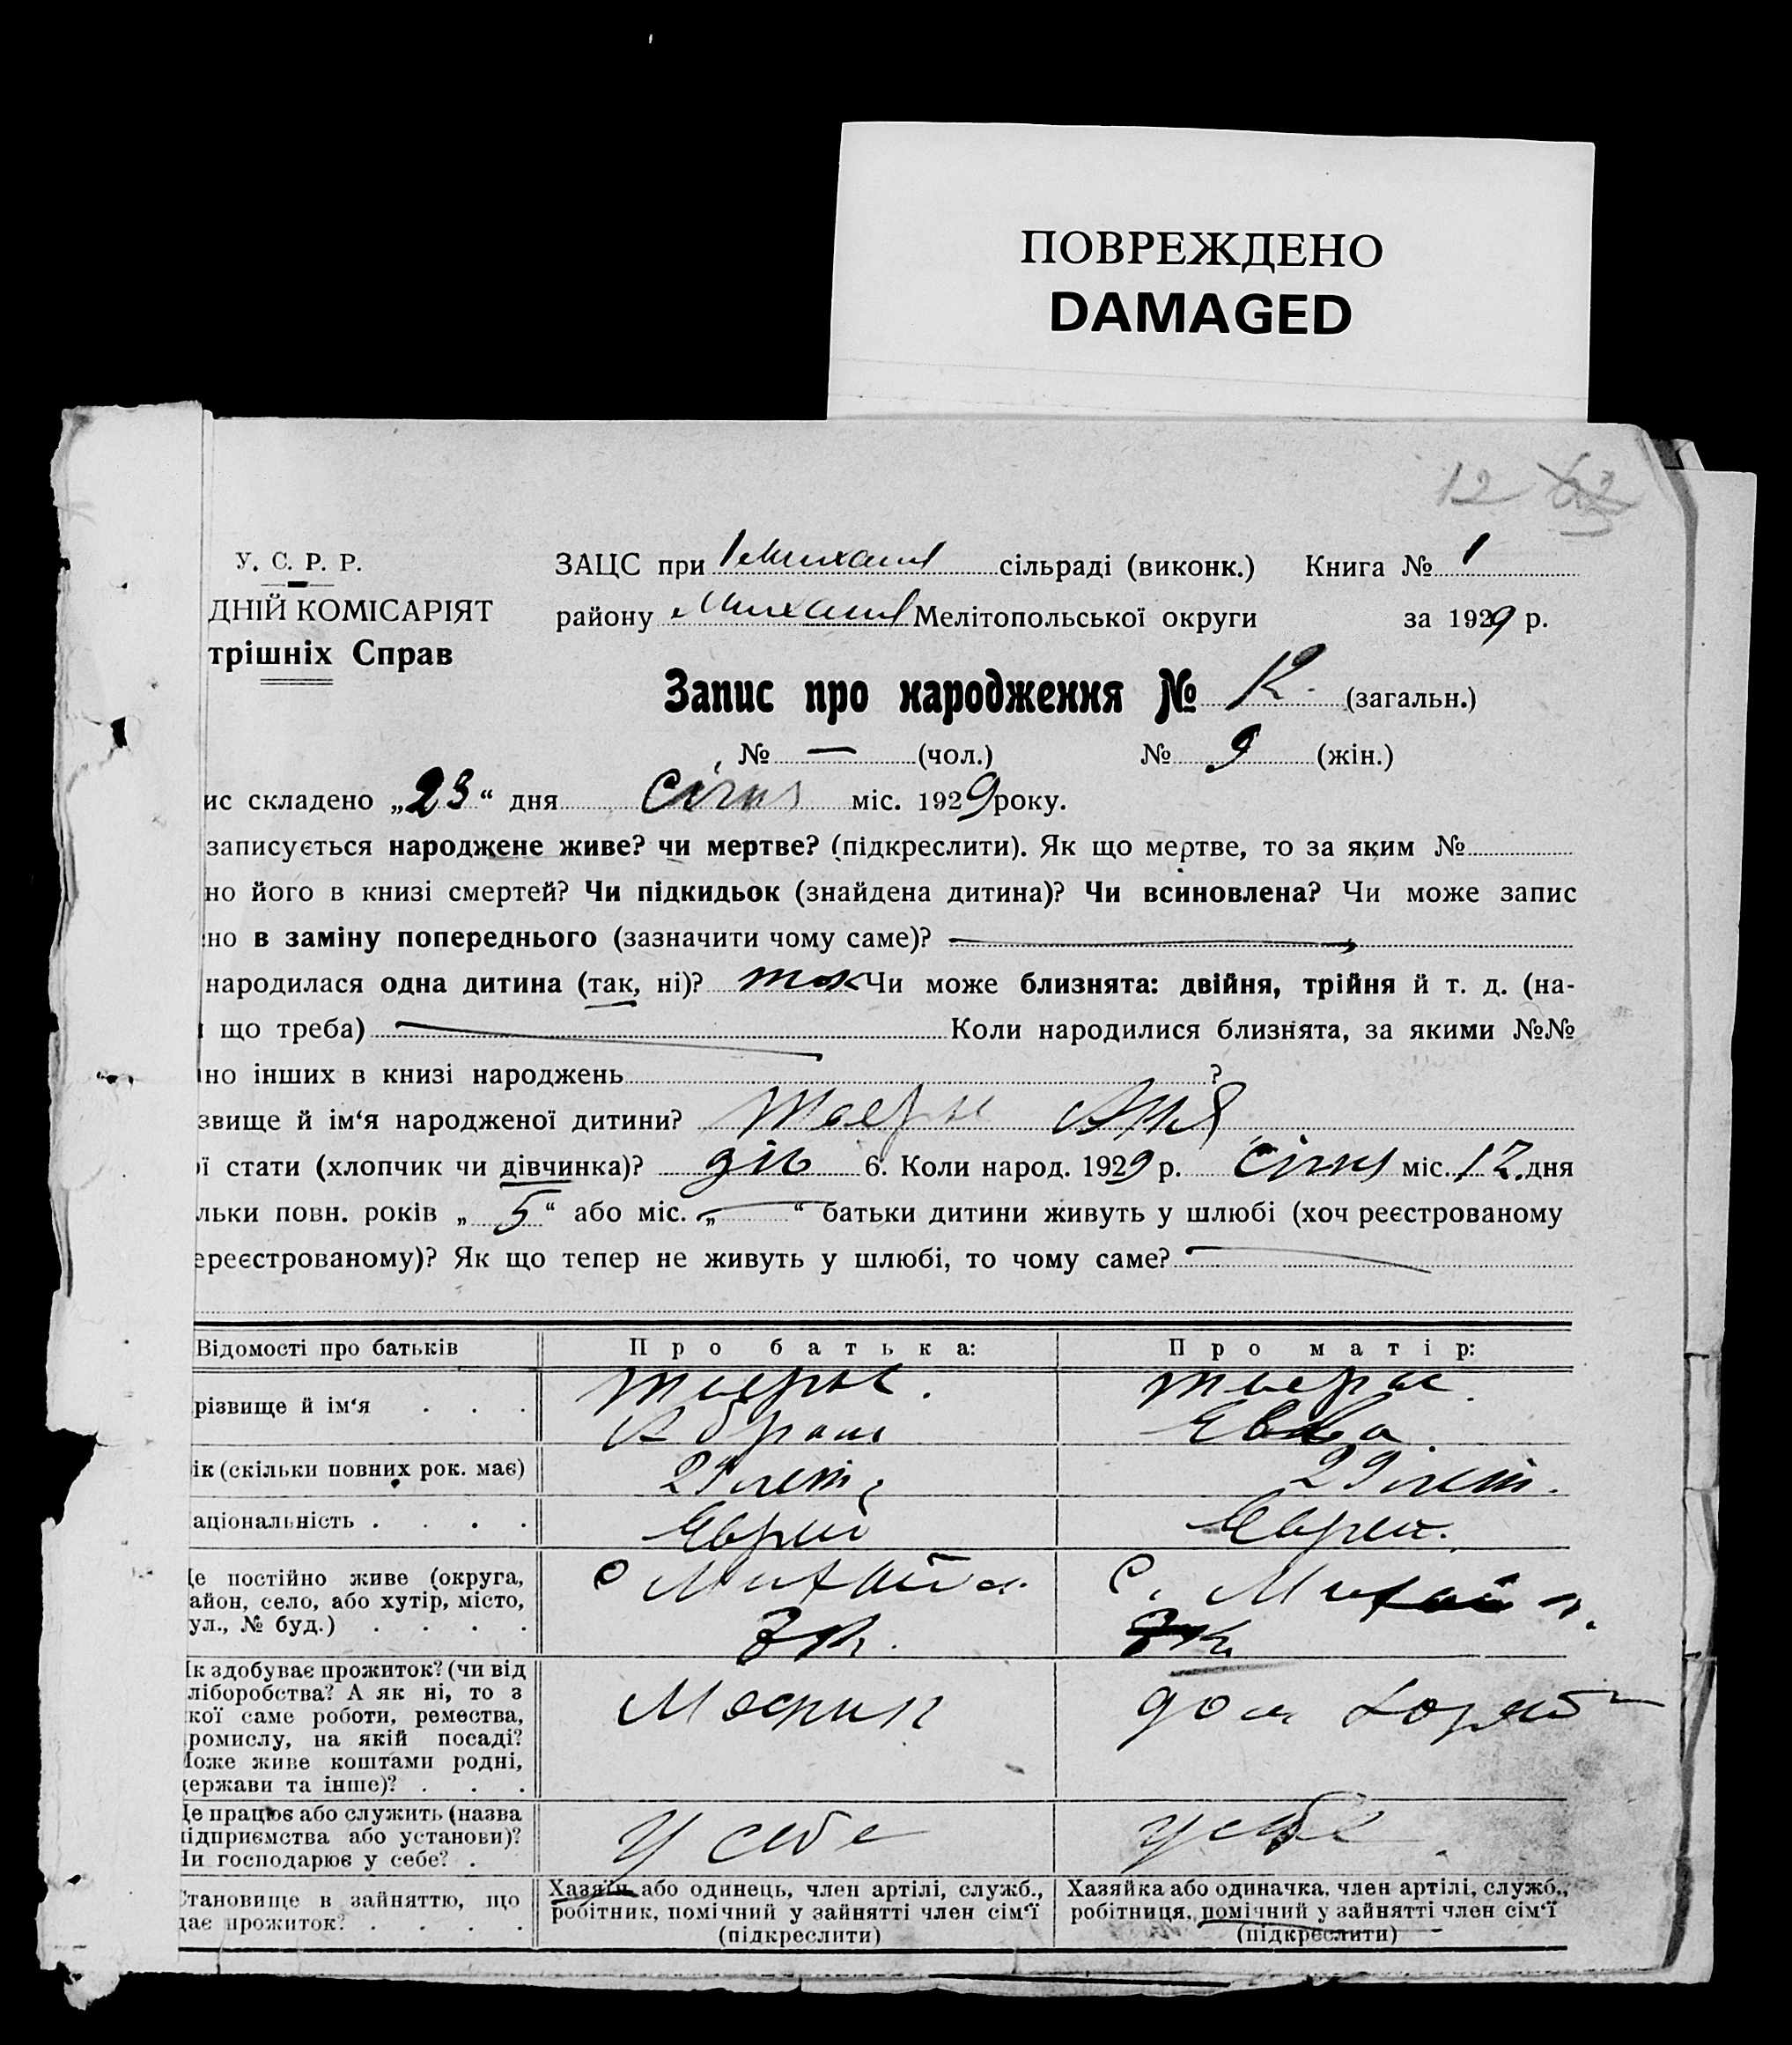 ПОВРЕЖДЕНО
DAMAGED
12 62
У. С. Р. Р.
ЗАЦС при Михайл сільраді (виконк.) Книга № 1
ДНІЙ КОМІСАРІЯТ
району Михайл Мелітопольської округи за 1929 р.
трішніх Справ
Запис про народження № 12. (загальн.)
№ — (чол.) № 9 (жін.)
ис складено „23“ дня Січня міс. 1929 року.
записується народжене живе? чи мертве? (підкреслити). Як що мертве, то за яким №
но його в книзі смертей? Чи підкидьок (знайдена дитина)? Чи всиновлена? Чи може запис
но в заміну попереднього (зазначити чому саме)? —
народилася одна дитина (так, ні)? так Чи може близнята: двійня, трійня й т. д. (на-
що треба) — Коли народилися близнята, за якими №№
но інших в книзі народжень ?
звище й ім‘я народженої дитини?
ої стати (хлопчик чи дівчинка)? дів 6. Коли народ. 1929 р. Січня міс. 12. дня
льки повн. років „5“ або міс. „—“ батьки дитини живуть у шлюбі (хоч реєстрованому
ереєстрованому)? Як що тепер не живуть у шлюбі, то чому саме? —
Відомості про батьків
Про батька:
Про матір:
різвище й ім‘я . . .
Абрам
Евва
ік (скільки повних рок. має)
29 лет.
29 лет.
аціональність . . . .
Еврей
Еврей.
Де постійно живе (округа,
айон, село, або хутір, місто,
ул., № буд.) . . . .
с Михайл.
с. Михайл.
Як здобуває прожиток? (чи від
ліборобства? А як ні, то з
кої саме роботи, ремества,
ромислу, на якій посаді?
Може живе коштами родні,
держави та інше)? . . .
дом
Де працює або служить (назва
підприємства або установи)?
Чи господарює у себе? .
У себе
у себе
Становище в зайняттю, що
дає прожиток? . . . .
Хазяїн або одинець, член артілі, служб.,
робітник, помічний у зайнятті член сім‘ї
(підкреслити)
Хазяйка або одиначка, член артілі, служб.,
робітниця, помічний у зайнятті член сім‘ї
(підкреслити)